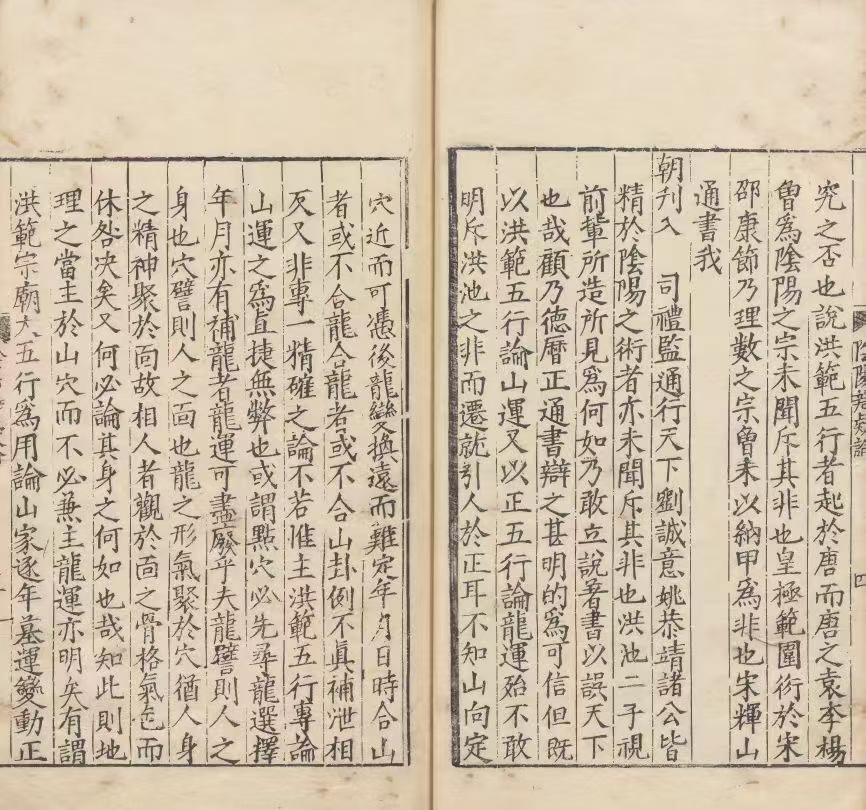 陰陽 論 四
究之否也說洪範五行者起於唐而唐之袁李楊
曾爲陰陽之宗未聞斥其非也皇極範圍衍於宋
邵康節乃理數之宗曾未以納甲爲非也宋輝山
通書我
朝刊入 司禮監通行天下劉誠意姚恭靖諸公皆
精於陰陽之術者亦未聞斥其非也洪池二子視
前輩所造所見爲何如乃敢立說著書以誤天下
也哉顧乃德曆正通書辯之甚明的爲可信但既
以洪範五行論山運又以正五行論龍運殆不敢
明斥洪池之非而遷就引人於正耳不知山向定
穴近而可憑後龍變換遠而難定年月日時合山
者或不合龍合龍者或不合山卦例不眞補泄相
反又非專一精確之論不若惟主洪範五行專論
山運之爲直捷無弊也或謂點穴必先尋龍選擇
年月亦有補龍者龍運可盡廢乎夫龍譬則人之
身也穴譬則人之面也龍之形氣聚於穴猶人身
之精神聚於面故相人者觀於面之骨格氣色而
休咎决矣又何必論其身之何如也哉知此則地
理之當主於山穴而不必兼主龍運亦明矣有謂
洪範宗廟大五行爲用論山家逐年墓運變動正